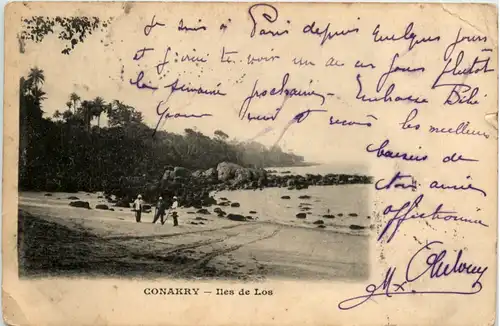 Je suis à Paris depuis quelques jours
et j'irai te voir un de ces jours plutôt
la semaine prochaine. Embrasse Bébé
pour moi et reçois les meilleurs
baisers de
ton amie
affectionnée
CONAKRY – Iles de Los